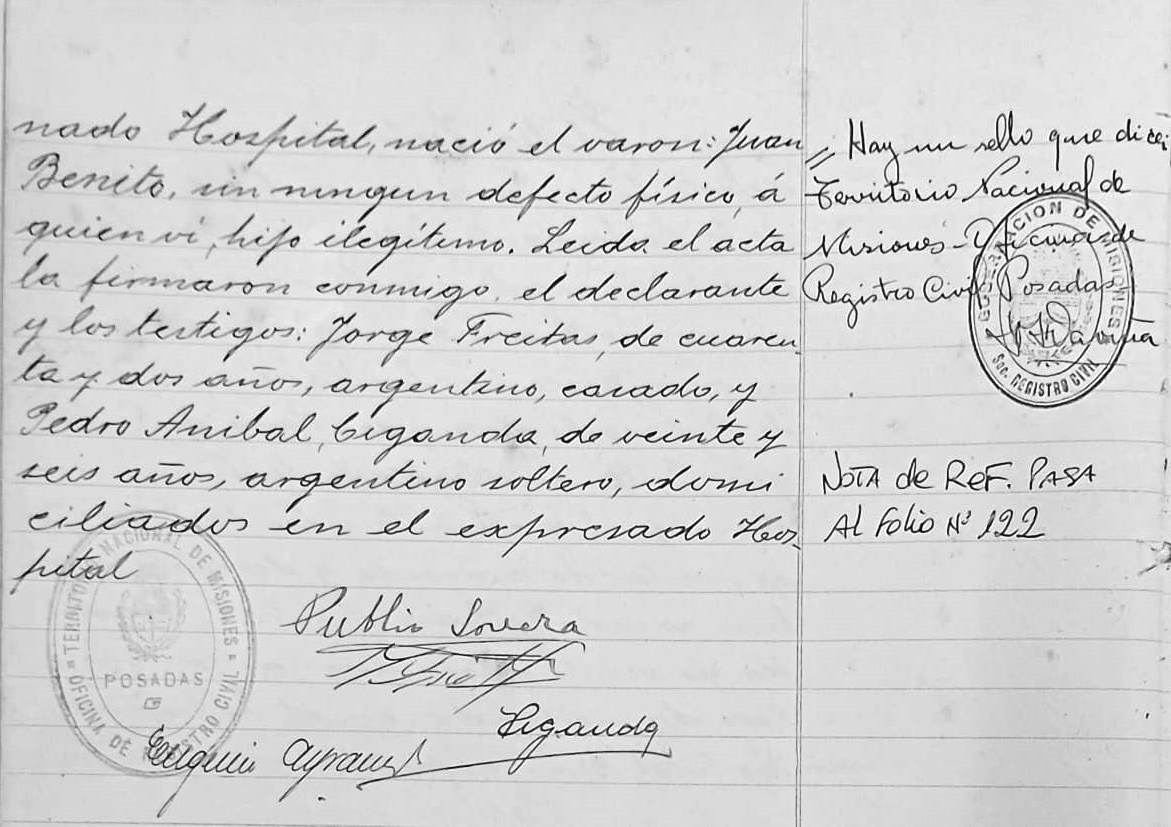 nado Hospital, nació el varon: Juan
Benito, sin ningun defecto físico, á
quien vi, hijo ilegítimo. Leida el acta
la firmaron conmigo, el declarante
y los testigos: Jorge Freitas, de cuaren-
ta y dos años, argentino, casado, y
Pedro Anibal Ciganda, de veinte y
seis años, argentino soltero, domi
ciliados en el expresado Hos-
pital
Publio
Ciganda
TERRITORIO NACIONAL DE MISIONES
POSADAS
OFICINA DE REGISTRO CIVIL
Hay un sello que dice:
Territorio Nacional de
Misiones - Oficinas de
Registro Civil Posadas
GOBERNACION DE MISIONES
Sec. REGISTRO CIVIL
NOTA de REF. PASA
Al Folio Nº 122